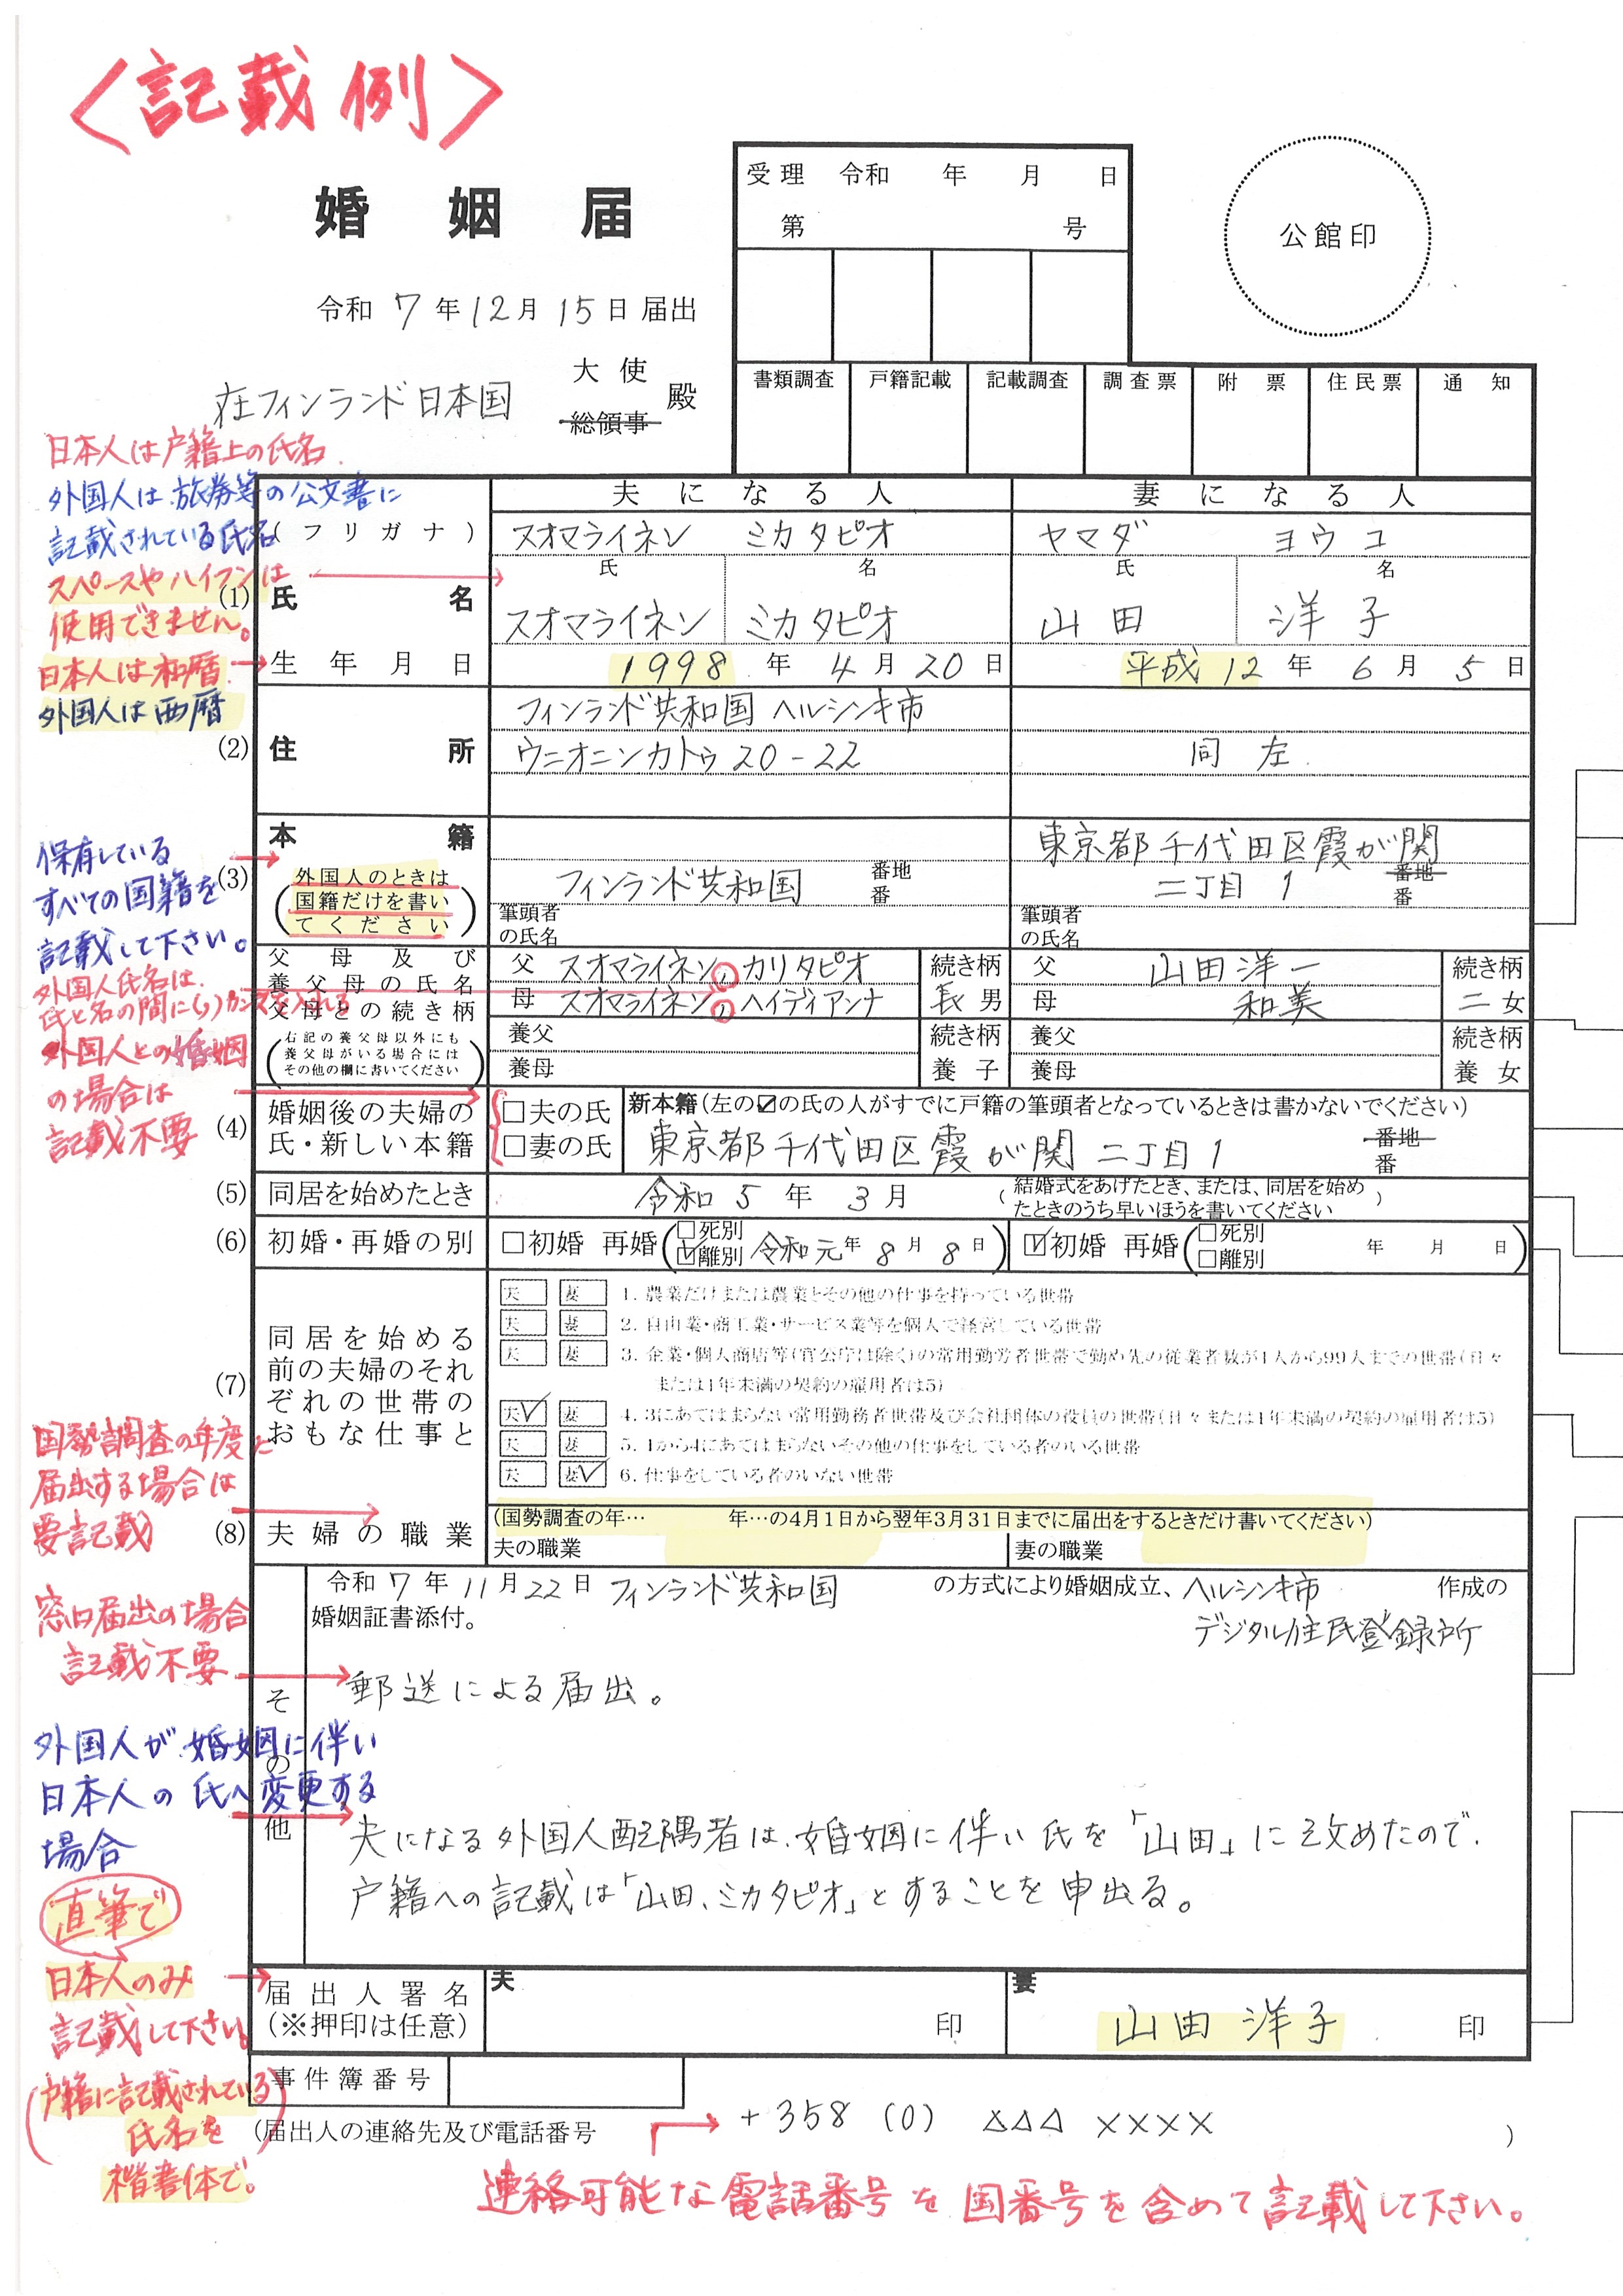 〈記載例〉
婚姻届
受理 令和 年 月 日
第 号
公館印
令和 7 年 12 月 15 日 届出
在フィンランド日本国 大使 総領事 殿
書類調査 戸籍記載 記載調査 調査票 附票 住民票 通知
日本人は戸籍上の氏名.
外国人は旅券等の公文書に
記載されている氏名
スペースやハイフンは
使用できません。
日本人は和暦
外国人は西暦
夫になる人 妻になる人
(フリガナ) スオマライネン ミカタピオ ヤマダ ヨウコ
氏 名 氏 名
(1) 氏名 スオマライネン ミカタピオ 山田 洋子
生年月日 1998 年 4 月 20 日 平成 12 年 6 月 5 日
フィンランド共和国 ヘルシンキ市
(2) 住所 ウニオニンカトゥ 20-22 同左.
保有している
すべての国籍を
記載して下さい。
本籍 東京都千代田区霞が関
(3) (外国人のときは国籍だけを書いてください) フィンランド共和国 番地 番 二丁目 1 番地 番
筆頭者の氏名 筆頭者の氏名
外国人氏名は、
氏と名の間に(、)カンマを入れる
父母及び養父母の氏名
父母との続き柄
(右記の養父母以外にも養父母がいる場合にはその他の欄に書いてください)
父 スオマライネン、カリタピオ 続き柄 父 山田洋一 続き柄
母 スオマライネン、ヘイディアンナ 長 男 母 和美 二 女
養父 続き柄 養父 続き柄
養母 養子 養母 養女
外国人との婚姻
の場合は
記載不要
(4) 婚姻後の夫婦の氏・新しい本籍
□夫の氏
□妻の氏
新本籍(左の☑の氏の人がすでに戸籍の筆頭者となっているときは書かないでください)
東京都千代田区霞が関 二丁目 1 番地 番
(5) 同居を始めたとき 令和 5 年 3 月 (結婚式をあげたとき、または、同居を始めたときのうち早いほうを書いてください)
(6) 初婚・再婚の別 □初婚 再婚(□死別 ☑離別 令和元年 8 月 8 日) ☑初婚 再婚(□死別 □離別 年 月 日)
(7) 同居を始める前の夫婦のそれぞれの世帯のおもな仕事と
夫 妻 1. 農業だけまたは農業とその他の仕事を持っている世帯
夫 妻 2. 自由業・商工業・サービス業等を個人で経営している世帯
夫 妻 3. 企業・個人商店等(官公庁は除く)の常用勤労者世帯で勤め先の従業者数が1人から99人までの世帯(日々
または1年未満の契約の雇用者は5)
夫✓ 妻 4. 3にあてはまらない常用勤務者世帯及び会社団体の役員の世帯(日々または1年未満の契約の雇用者は5)
夫 妻 5. 1から4にあてはまらないその他の仕事をしている者のいる世帯
夫 妻✓ 6. 仕事をしている者のいない世帯
国勢調査の年度に
届出する場合は
要記載
(8) 夫婦の職業
(国勢調査の年… 年…の4月1日から翌年3月31日までに届出をするときだけ書いてください)
夫の職業 妻の職業
その他
令和 7 年 11 月 22 日 フィンランド共和国 の方式により婚姻成立、ヘルシンキ市 作成の
婚姻証書添付。 デジタル住民登録所
窓口届出の場合
記載不要
郵送による届出。
外国人が婚姻に伴い
日本人の氏へ変更する
場合
夫になる外国人配偶者は、婚姻に伴い氏を「山田」に改めたので、
戸籍への記載は「山田、ミカタピオ」とすることを申出る。
直筆で
日本人のみ
記載して下さい。
(戸籍に記載されている
氏名を
楷書体で。)
届出人署名
(※押印は任意)
夫 印 妻 山田 洋子 印
事件簿番号
(届出人の連絡先及び電話番号 +358 (0) △△△ ×××× )
連絡可能な電話番号を国番号を含めて記載して下さい。